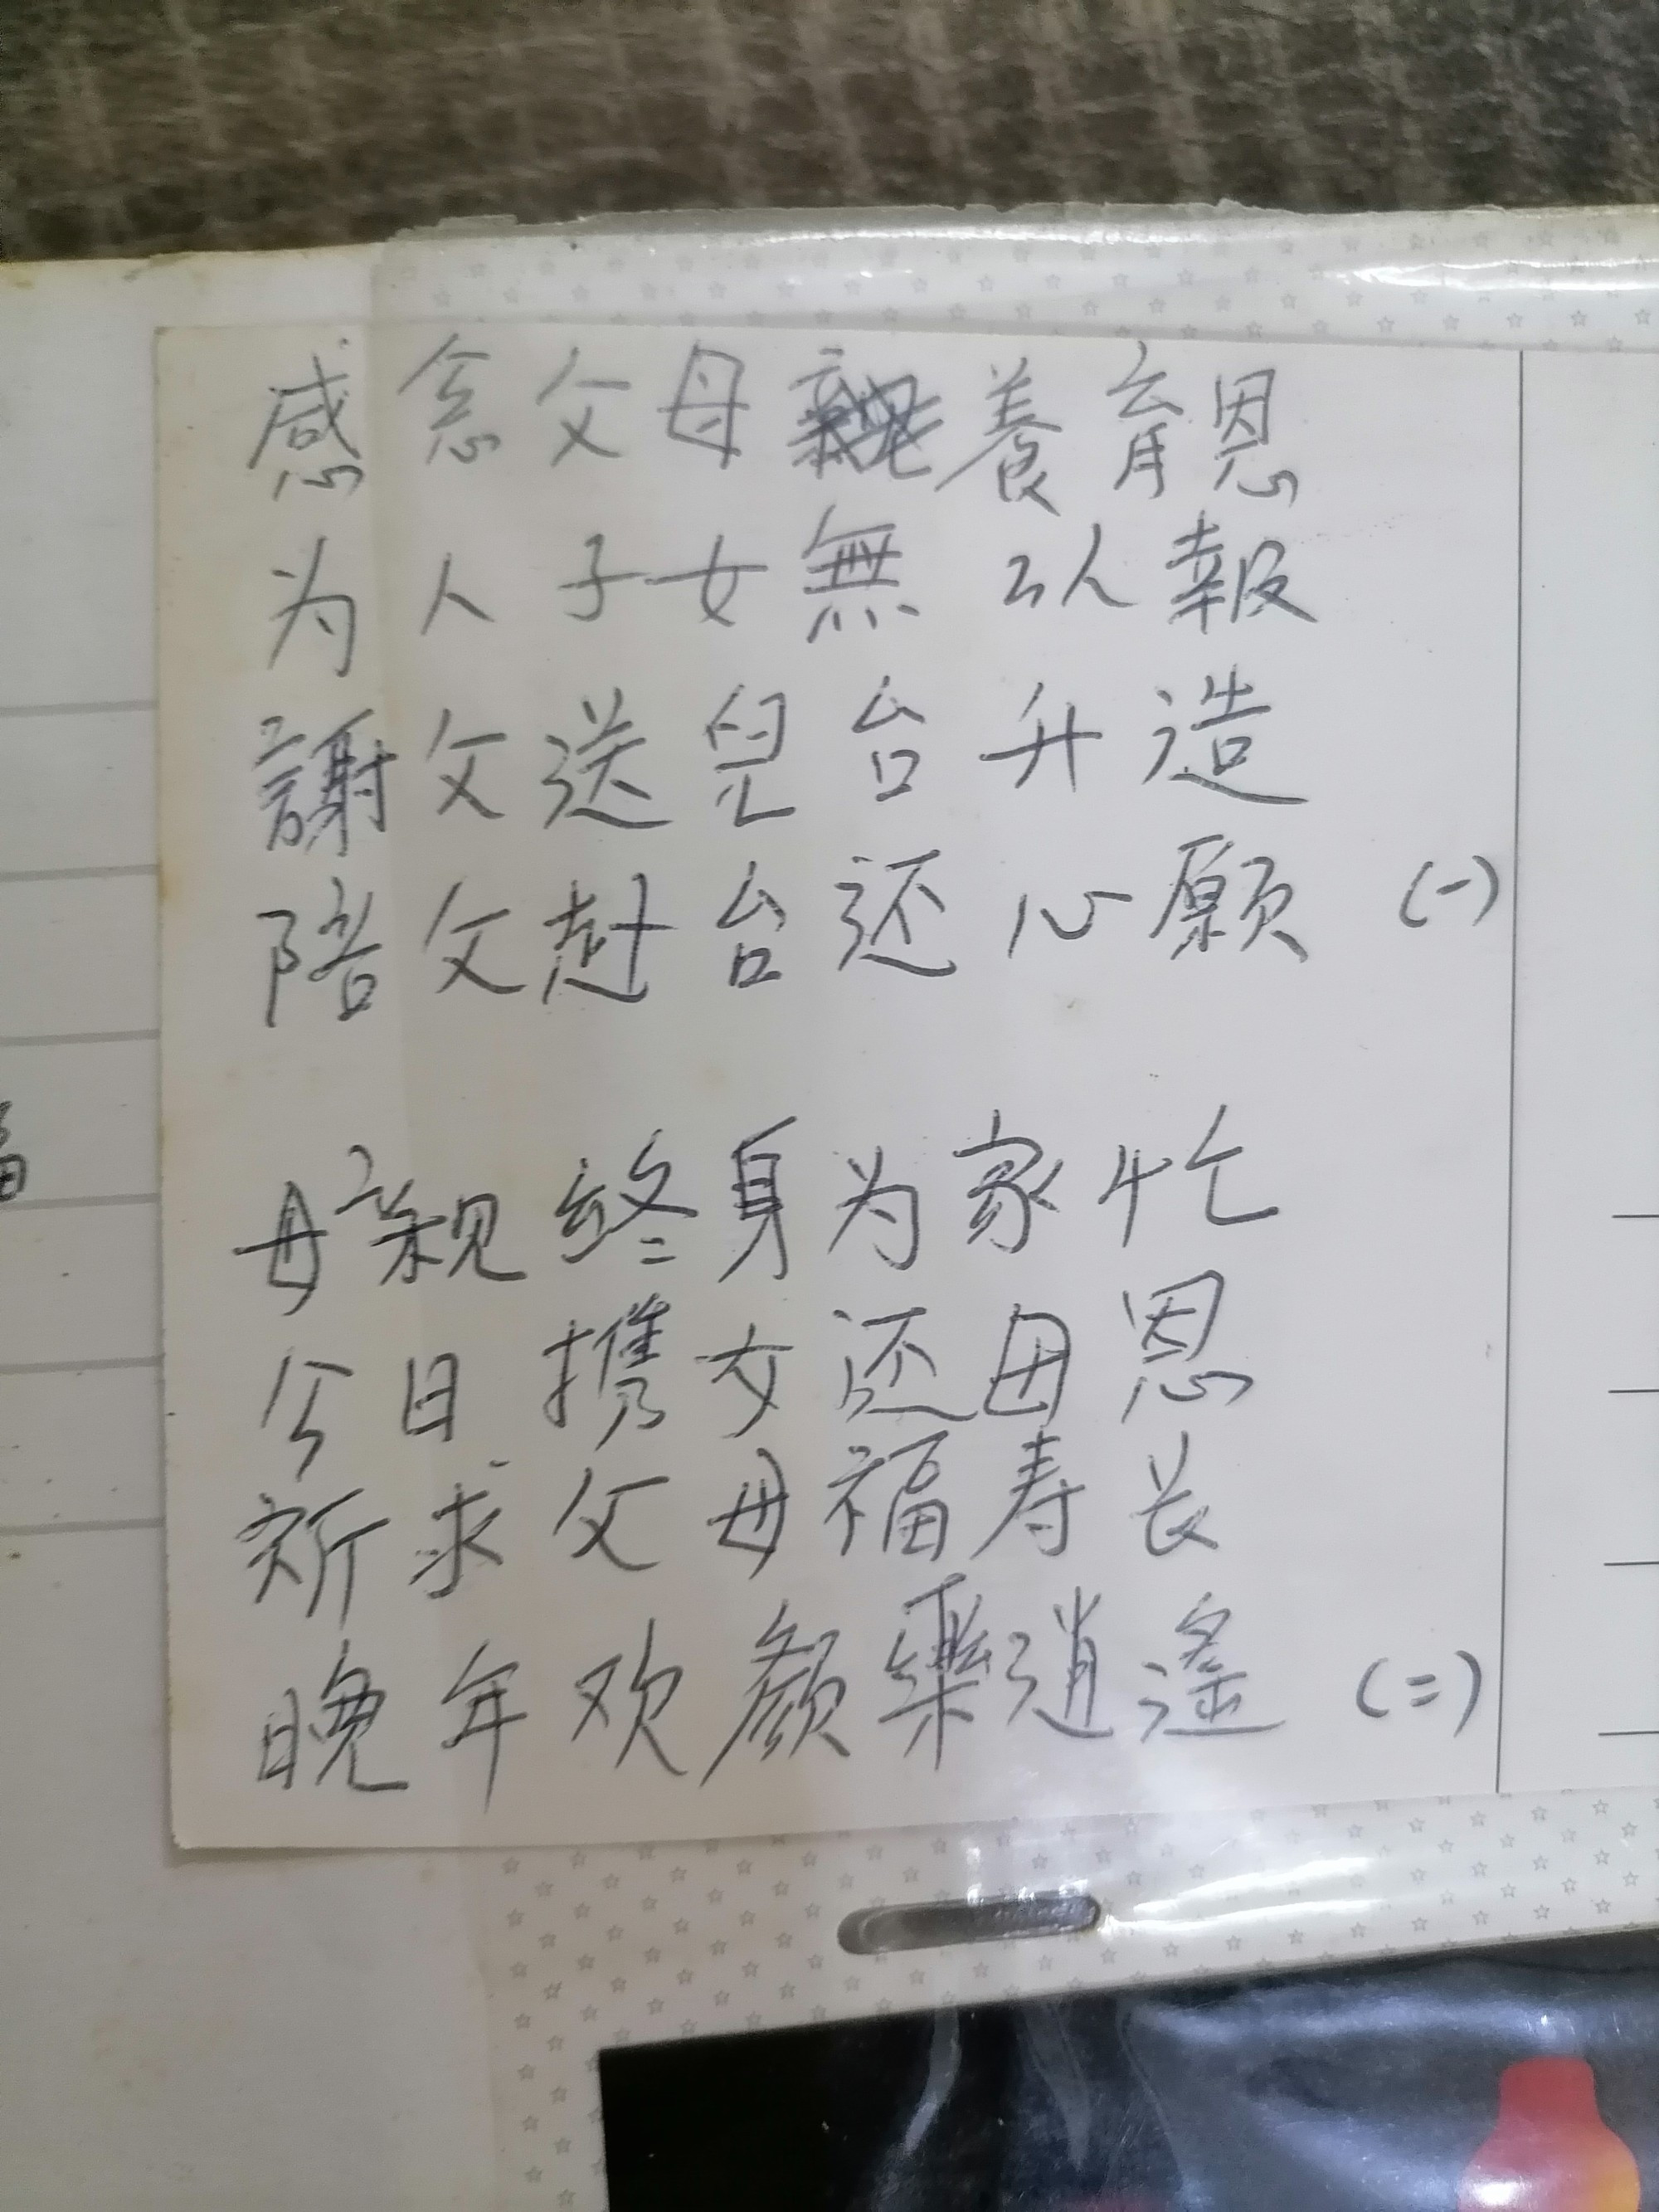 感念父母養育恩
为人子女無以報
謝父送兒台升造
陪父赴台还心願 (一)
母亲終身为家忙
今日携女还母恩
祈求父母福寿长
晚年欢颜樂逍遙 (二)